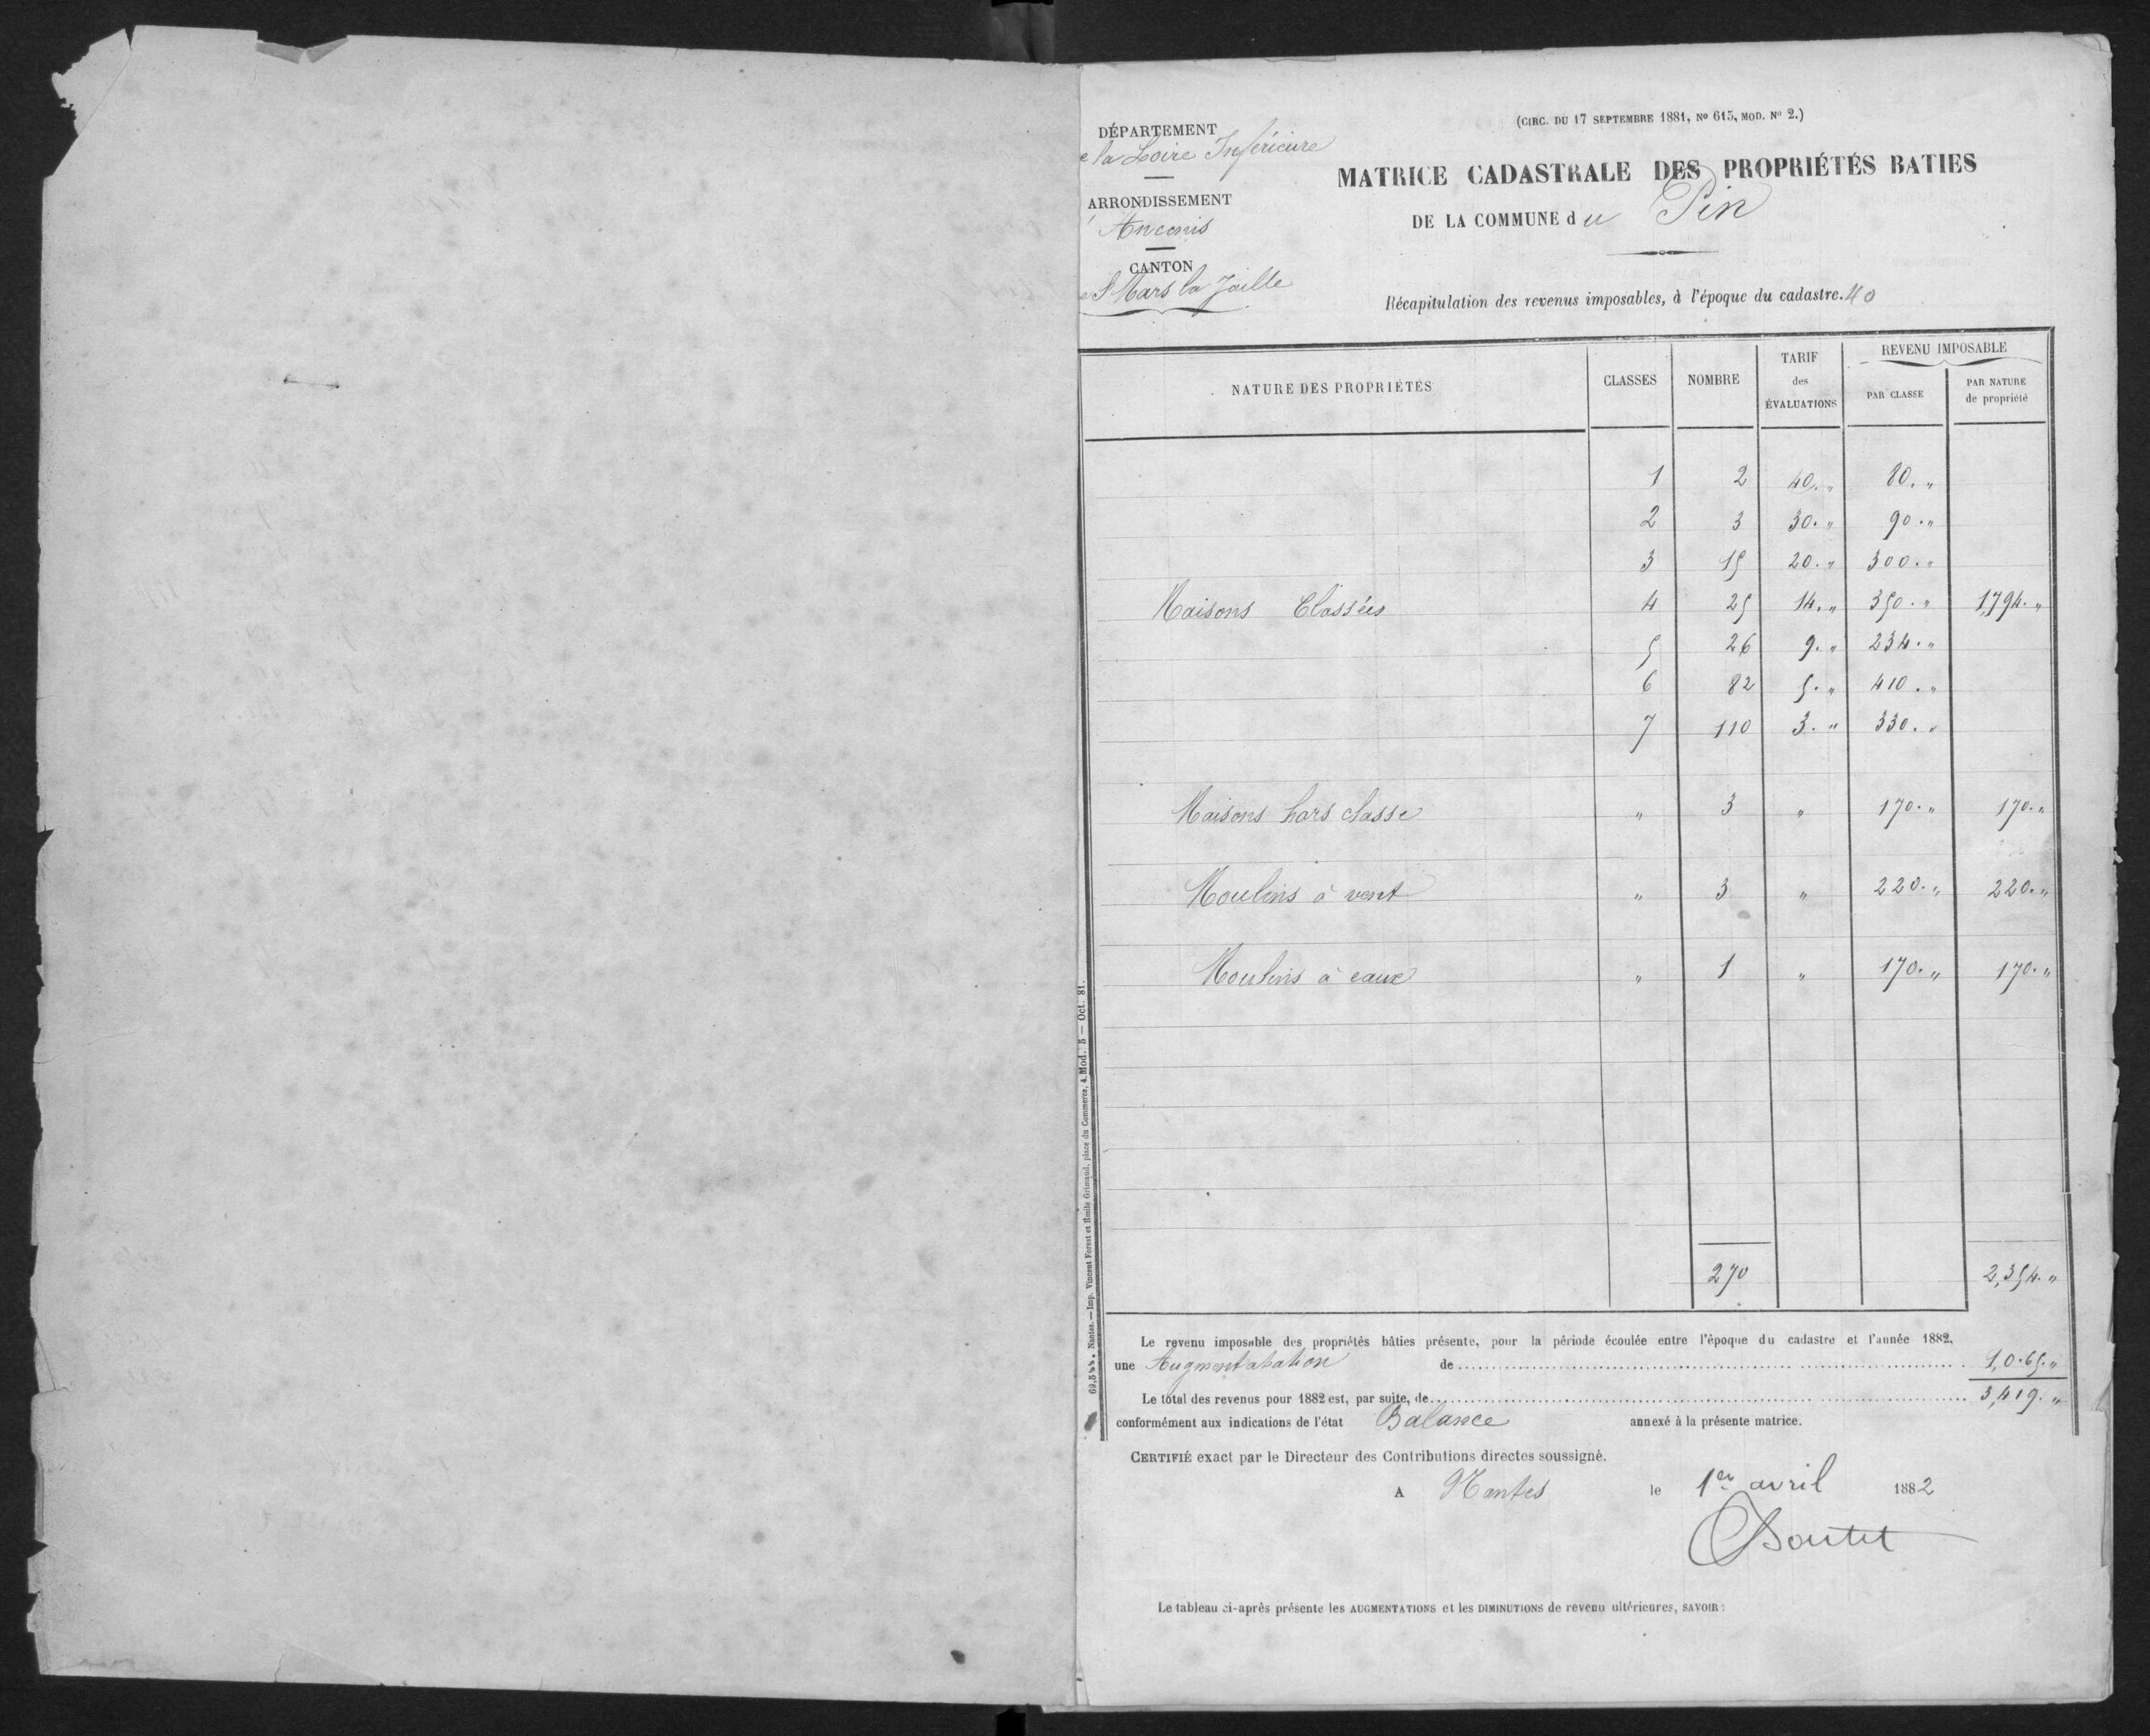 (CIRC. DU 17 SEPTEMBRE 1881, No 615, MOD. No 2.)
DÉPARTEMENT
e la Loire Inférieure
ARRONDISSEMENT
Ancenis
CANTON
St Mars la Jaille
MATRICE CADASTRALE DES PROPRIÉTÉS BATIES
DE LA COMMUNE du Pin
Récapitulation des revenus imposables, à l'époque du cadastre. 40
NATURE DES PROPRIÉTÉS CLASSES NOMBRE TARIF des ÉVALUATIONS REVENU IMPOSABLE PAR CLASSE PAR NATURE de propriété
1 2 40. " 80. "
2 3 30. " 90. "
3 15 20. " 300. "
Maisons Classées 4 25 14. " 350. " 1,794. "
5 26 9. " 234. "
6 82 5. " 410. "
7 110 3. " 330. "
Maisons hors classe " 3 " 170. " 170. "
Moulins à vent " 3 " 220. " 220. "
Moulins à eaux " 1 " 170. " 170. "
270 2,354. "
Le revenu imposable des propriétés bâties présente, pour la période écoulée entre l'époque du cadastre et l'année 1882,
une Augmentatation de 1,0.65. "
Le total des revenus pour 1882 est, par suite, de 3,419. "
conformément aux indications de l'état Balance annexé à la présente matrice.
CERTIFIÉ exact par le Directeur des Contributions directes soussigné.
A Nantes le 1er avril 1882
Le tableau ci-après présente les AUGMENTATIONS et les DIMINUTIONS de revenu ultérieures, SAVOIR :
69,544. Nantes. — Imp. Vincent Forest et Émile Grimaud, place du Commerce, 4. Mod. 5 — Oct. 81.